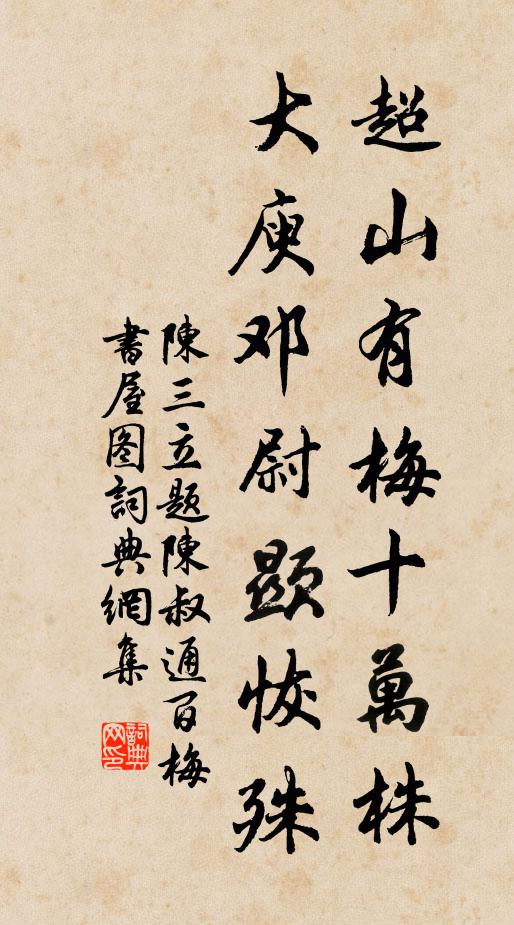 超山有梅十萬株
大庾邓尉顕恢殊
陳三立题陳叔通百梅
書屋图詞典網集
詞典网印